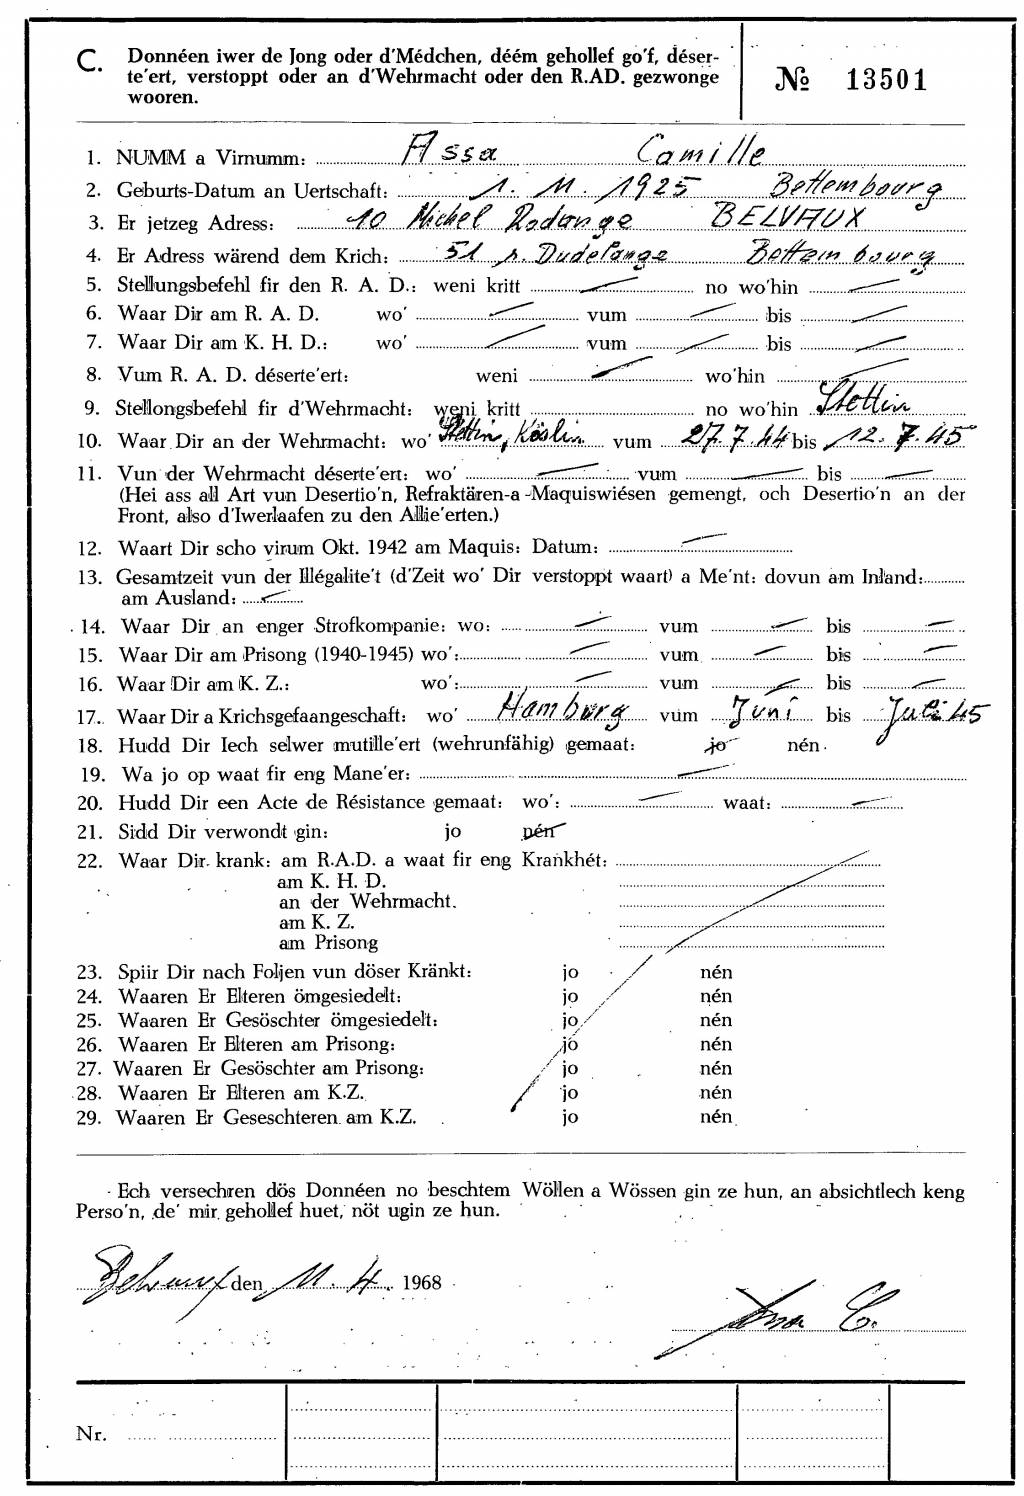 C. Donnéen iwer de Jong oder d'Médchen, déém gehollef go'f, déser-
te'ert, verstoppt oder an d'Wehrmacht oder den R.AD. gezwonge
wooren.
№ 13501
1. NUMM a Virnumm: Assa Camille
2. Geburts-Datum an Uertschaft: 1. 11. 1925 Bettembourg
3. Er jetzeg Adress: 10 Michel Rodange BELVAUX
4. Er Adress wärend dem Krich: 51 r. Dudelange Bettembourg
5. Stellungsbefehl fir den R. A. D.: weni kritt — no wo'hin —
6. Waar Dir am R. A. D. wo' — vum — bis —
7. Waar Dir am K. H. D.: wo' — vum — bis —
8. Vum R. A. D. déserte'ert: weni — wo'hin —
9. Stellongsbefehl fir d'Wehrmacht: weni kritt no wo'hin Stettin
10. Waar Dir an der Wehrmacht: wo' Stettin, Köslin vum 27.7.44 bis 12.7.45
11. Vun der Wehrmacht déserte'ert: wo' — vum — bis —
(Hei ass all Art vun Desertio'n, Refraktären-a-Maquiswiésen gemengt, och Desertio'n an der
Front, also d'Iwerlaafen zu den Allie'erten.)
12. Waart Dir scho virum Okt. 1942 am Maquis: Datum: —
13. Gesamtzeit vun der Illégalite't (d'Zeit wo' Dir verstoppt waart) a Me'nt: dovun am Inland:
am Ausland: —
14. Waar Dir an enger Strofkompanie: wo: — vum — bis —
15. Waar Dir am Prisong (1940-1945) wo': — vum — bis —
16. Waar Dir am K. Z.: wo': — vum — bis —
17. Waar Dir a Krichsgefaangeschaft: wo' Hamburg vum Juni bis Juli 45
18. Hudd Dir Iech selwer mutille'ert (wehrunfähig) gemaat: jo nén
19. Wa jo op waat fir eng Mane'er: —
20. Hudd Dir een Acte de Résistance gemaat: wo': — waat: —
21. Sidd Dir verwondt gin: jo nén
22. Waar Dir krank: am R.A.D. a waat fir eng Krankhét:
am K. H. D.
an der Wehrmacht.
am K. Z.
am Prisong
23. Spiir Dir nach Foljen vun döser Kränkt: jo nén
24. Waaren Er Elteren ömgesiedelt: jo nén
25. Waaren Er Gesöschter ömgesiedelt: jo nén
26. Waaren Er Elteren am Prisong: jo nén
27. Waaren Er Gesöschter am Prisong: jo nén
28. Waaren Er Elteren am K.Z. jo nén
29. Waaren Er Geseschteren am K.Z. jo nén
Ech versechren dös Donnéen no beschtem Wöllen a Wössen gin ze hun, an absichtlech keng
Perso'n, de' mir gehollef huet, nöt ugin ze hun.
Belvaux den 11. 4. 1968
Assa C.
Nr.